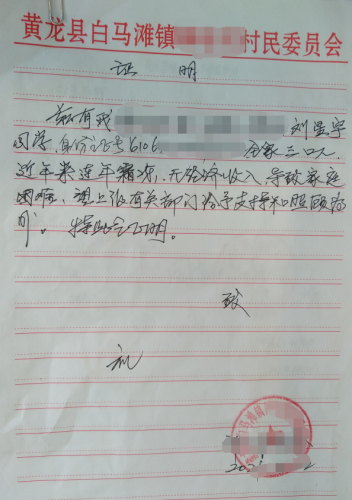 黄龙县白马滩镇 村民委员会
证 明
兹有我 刘星宇
同学,身份证号6106 全家三口人,
近年来连年霜冻,无经济收入,导致家庭
困难,望上级有关部门给予支持和照顾为
盼。特此证明。
致
礼
202